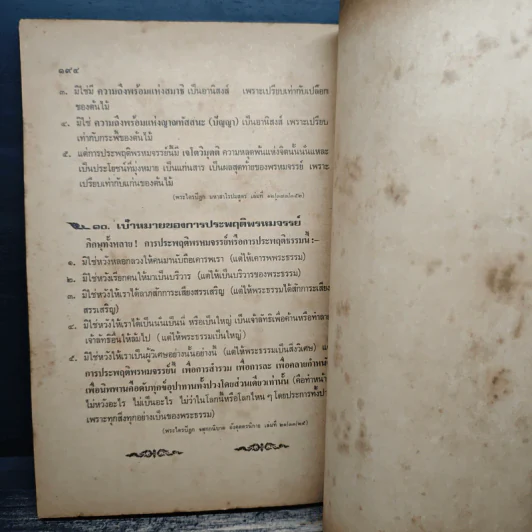 ๑๙๔
๓. มิใช่มี ความถึงพร้อมแห่งสมาธิ เป็นอานิสงส์ เพราะเปรียบเท่ากับเปลือก
ของต้นไม้
๔. มิใช่ ความถึงพร้อมแห่งญาณทัสสนะ (ปัญญา) เป็นอานิสงส์ เพราะเปรียบ
เท่ากับกระพี้ของต้นไม้
๕. แต่การประพฤติพรหมจรรย์นี้มี เจโตวิมุตติ ความหลุดพ้นแห่งจิตนั้นนั่นแหละ
เป็นประโยชน์ที่มุ่งหมาย เป็นแก่นสาร เป็นผลสุดท้ายของพรหมจรรย์ เพราะ
เปรียบเท่ากับแก่นของต้นไม้
(พระไตรปิฎก มหาสาโรปมสูตร เล่มที่
๑๐. เป้าหมายของการประพฤติพรหมจรรย์
ภิกษุทั้งหลาย! การประพฤติพรหมจรรย์หรือการประพฤติธรรมนี้ :-
๑. มิใช่หวังหลอกลวงให้คนมานับถือเคารพเรา (แต่ให้เคารพพระธรรม)
๒. มิใช่หวังเรียกคนให้มาเป็นบริวาร (แต่ให้เป็นบริวารของพระธรรม)
๓. มิใช่หวังให้เราได้ลาภสักการะเสียงสรรเสริญ (แต่ให้พระธรรมได้สักการะเสียง
สรรเสริญ)
๔. มิใช่หวังให้เราได้เป็นนั่นเป็นนี่ หรือเป็นใหญ่ เป็นเจ้าลัทธิเพื่อค้านหรือทำลาย
เจ้าลัทธิอื่นให้ล้มไป (แต่ให้พระธรรมเป็นใหญ่)
๕. มิใช่หวังให้เราเป็นผู้วิเศษอย่างนั้นอย่างนี้ (แต่ให้พระธรรมเป็นสิ่งวิเศษ)
การประพฤติพรหมจรรย์นี้ เพื่อการสำรวม เพื่อการละ เพื่อคลายกำหนัด
เพื่อนิพพานคือดับทุกข์อุปาทานทั้งปวงโดยส่วนเดียวเท่านั้น (คือทำหน้า
ไม่หวังอะไร ไม่เป็นอะไร ไม่ว่าในโลกนี้หรือโลกไหน ๆ โดยประการทั้งปวง
เพราะทุกสิ่งทุกอย่างเป็นของพระธรรม)
(พระไตรปิฎก จตุกกนิบาต อังคุตตรนิกาย เล่มที่